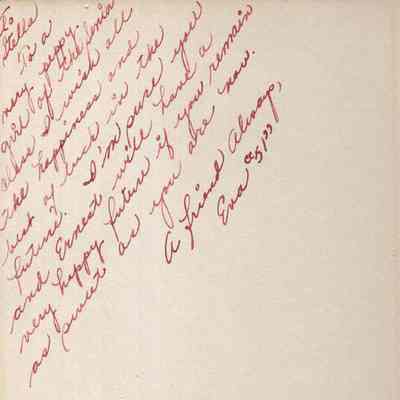 To
Stella
To a
very peppy
girl of the Senior
class I wish all
the happiness and
best of luck in the
future. I'm sure you
and Ernest will have a
very happy future if you remain
as sweet as you are now.
A friend Always,
Eva